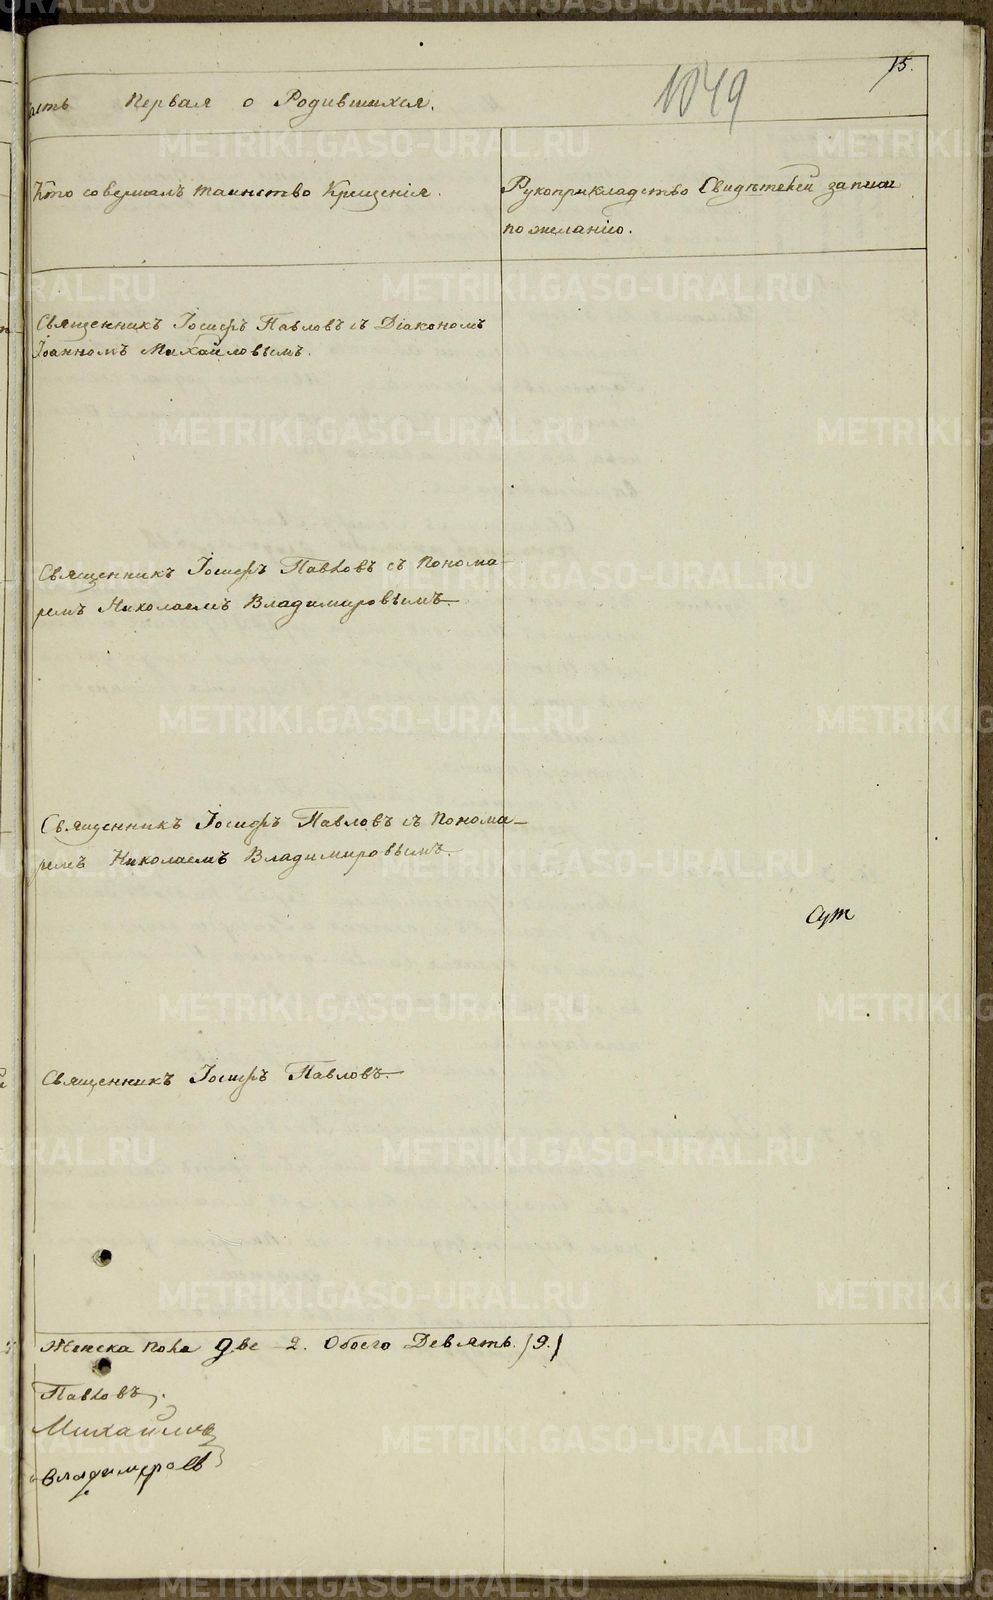 15.
1049
асть Первая о Родившихся.
Кто совершалъ таинство Крещенiя.
Рукоприкладство Свидѣтелей записи
по желанiю.
Священникъ Iосифъ Павловъ съ Дiакономъ
Iоанномъ Михайловымъ.
Священникъ Iосифъ Павловъ съ Понома-
ремъ Николаемъ Владимировымъ.
Священникъ Iосифъ Павловъ съ Понома-
ремъ Николаемъ Владимировымъ.
Священникъ Iосифъ Павловъ.
Женска пола Две 2. Обоего Девять. /9./
Павловъ.
Михайловъ
Владимировъ
METRIKI.GASO-URAL.RU